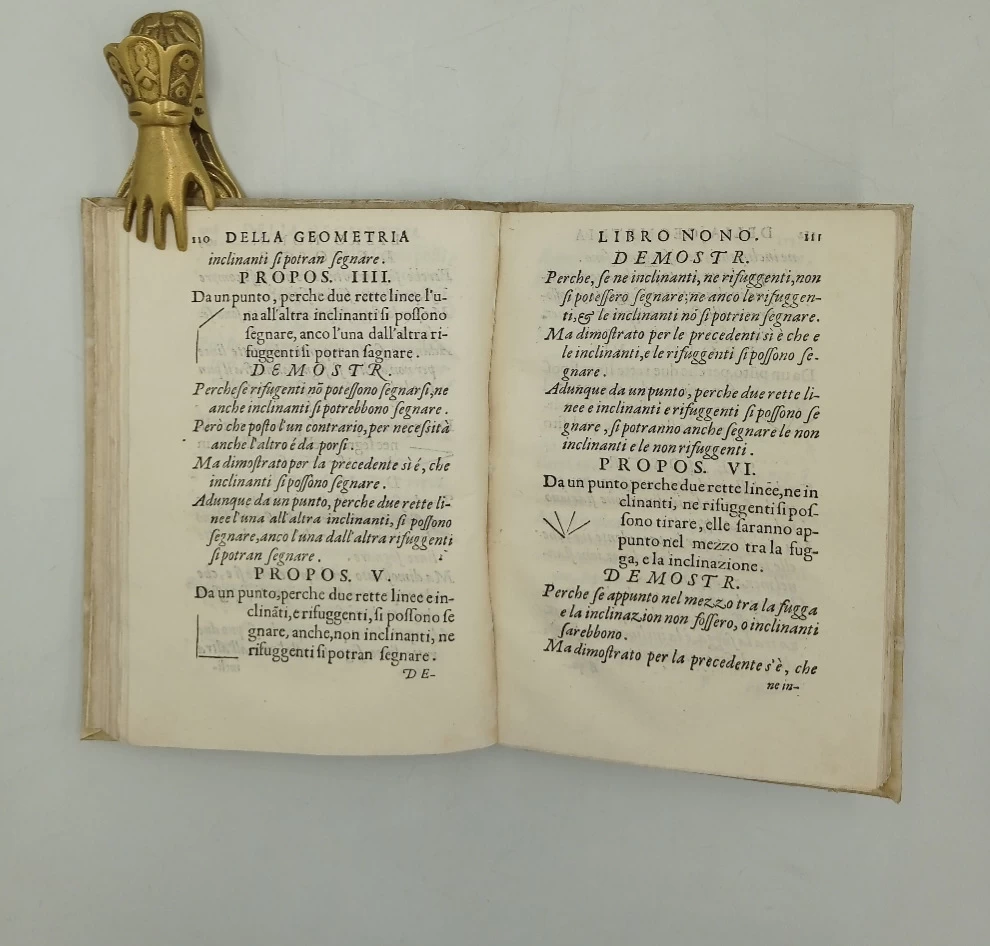 110 DELLA GEOMETRIA
inclinanti ſi potran ſegnare.
PROPOS. IIII.
Da un punto, perche due rette linee l'u-
na all'altra inclinanti ſi poſſono
ſegnare, anco l'una dall'altra ri-
fuggenti ſi potran ſagnare.
DEMOSTR.
Perche ſe rifugenti nõ poteſſono ſegnarſi, ne
anche inclinanti ſi potrebbono ſegnare.
Però che poſto l'un contrario, per neceſsità
anche l'altro é da porſi.
Ma dimoſtrato per la precedente sì é, che
inclinanti ſi poſſono ſegnare.
Adunque da un punto, perche due rette li-
nee l'una all'altra inclinanti, ſi poſſono
ſegnare, anco l'una dall'altra rifuggenti
ſi potran ſegnare.
PROPOS. V.
Da un punto, perche due rette linee e in-
clināti, e rifuggenti, ſi poſſono ſe
gnare, anche, non inclinanti, ne
rifuggenti ſi potran ſegnare.
DE-
LIBRO NONO. 111
DEMOSTR.
Perche, ſe ne inclinanti, ne rifuggenti, non
ſi poteſſero ſegnare; ne anco le rifuggen-
ti, & le inclinanti nõ ſi potrien ſegnare.
Ma dimoſtrato per le precedenti sì è che e
le inclinanti, e le rifuggenti ſi poſſono ſe-
gnare.
Adunque da un punto, perche due rette li-
nee e inclinanti e rifuggenti ſi poſſono ſe
gnare, ſi potranno anche ſegnare le non
inclinanti e le non rifuggenti.
PROPOS. VI.
Da un punto perche due rette linee, ne in
clinanti, ne rifuggenti ſi poſ-
ſono tirare, elle ſaranno ap-
punto nel mezzo tra la fug-
ga, e la inclinazione.
DEMOSTR.
Perche ſe appunto nel mezzo tra la fugga
e la inclinazion non foſſero, o inclinanti
ſarebbono.
Ma dimoſtrato per la precedente s'è, che
ne in-